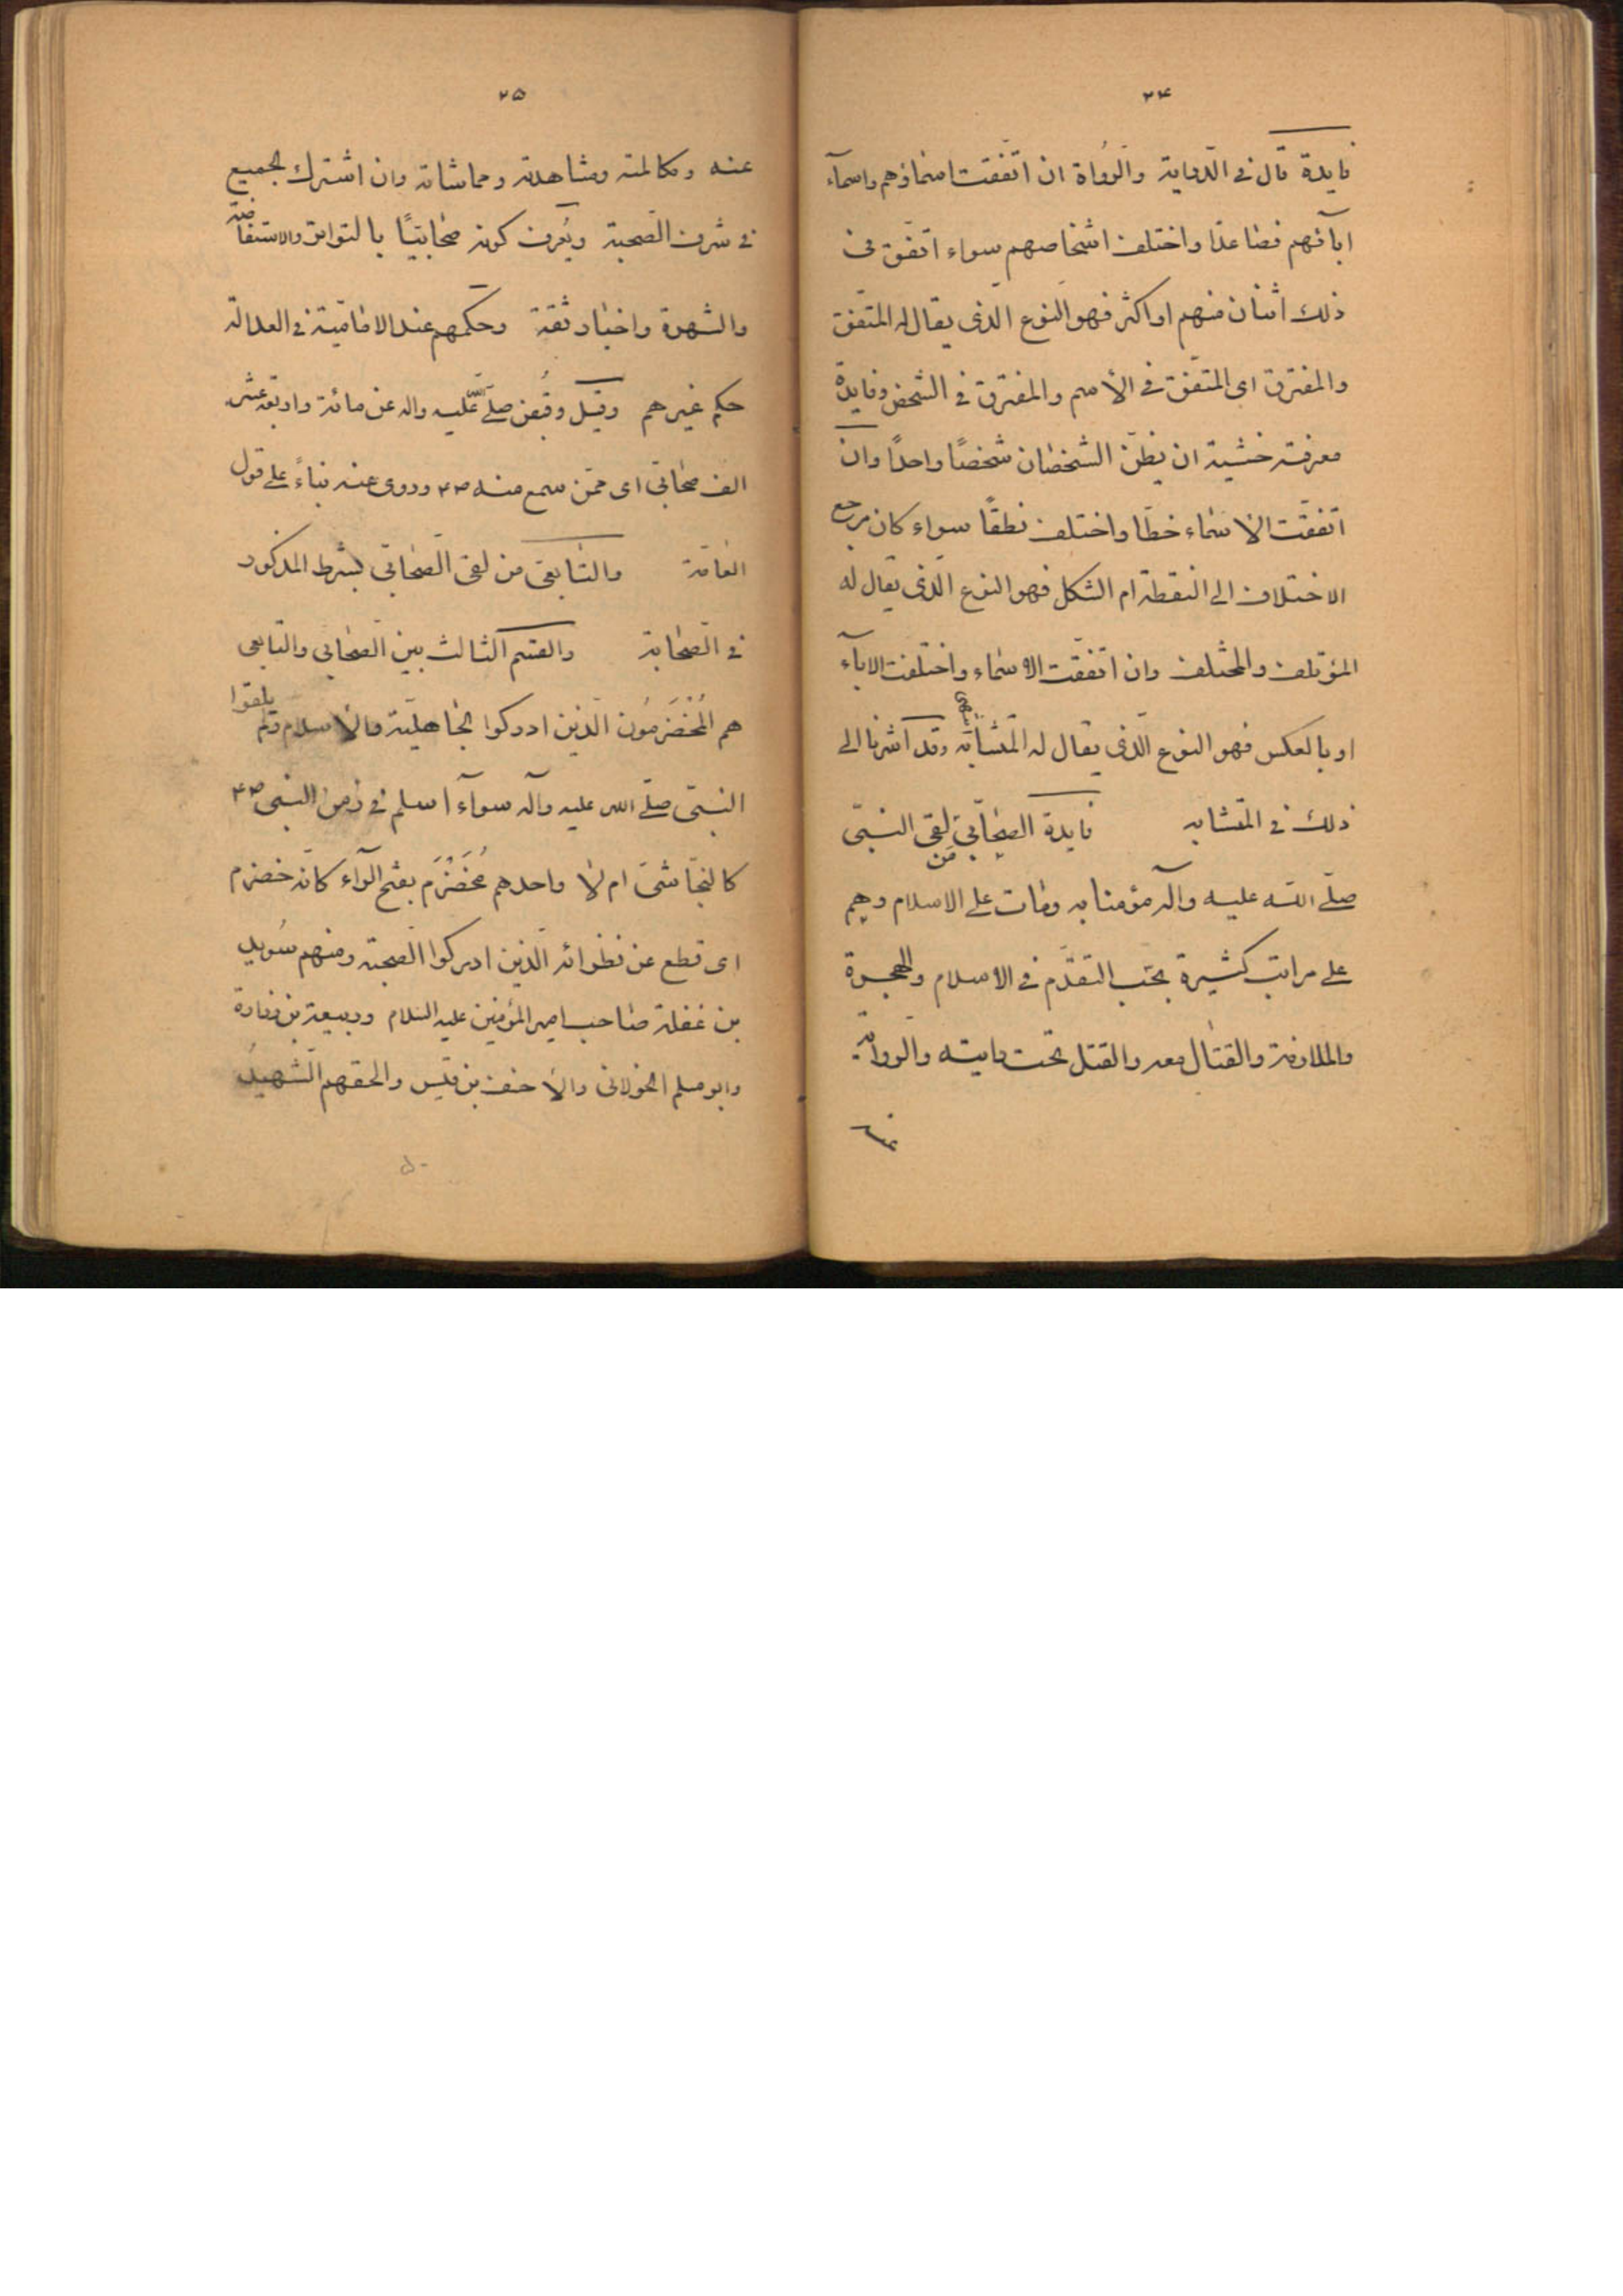 ۲۴
فايدة قال فى الدّراية والرّواة ان اتّفقت اسماؤهم واسمآء
ابآئهم فصاعدًا واختلف اشخاصهم سواء اتّفق فى
ذلك اثنان منهم او اكثر فهو النوع الّذى يقال له المتّفق
والمفترق اى المتّفق فى الأسم والمفترق فى الشّخص وفايدة
معرفته خشية ان يظنّ الشخصان شخصًا واحدًا وان
اتّفقت الاسماء خطّا واختلف نطقًا سواء كان مرجع
الاختلاف الى النقطة ام الشكل فهو النوع الّذى يقال له
المؤتلف والمختلف وان اتّفقت الاسماء واختلفت الاباء
او بالعكس فهو النوع الّذى يقال له المتشابه وقد اشرنا الى
ذلك فى المتشابه فايدة الصّحابّى من لقى النبىّ
صلّى اللّه عليه وآله مؤمنا به ومات على الاسلام وهم
على مراتب كثيرة بحسب التقدّم فى الاسلام والهجرة
والملازمة والقتال معه والقتل تحت رايته والرّواية
عنه
۲۵
عنه ومكالمته ومشاهدته ومماشاته وان اشترك الجميع
فى شرف الصّحبة ويُعرف كونه صحابيّا بالتواتر والاستفاضة
والشهرة واخبار ثقة وحكمهم عند الاماميّة فى العدالة
حكم غيرهم وقيل وقُبض صلّى اللّه عليه واله عن مائة واربعة عشر
الف صحابى اى ممّن سمع منه ص۴ وروى عنه بناءً على قول
العامّة والتّابعى من لقى الصّحابّى بشرط المذكور
فى الصّحابة والقسم الثالث بين الصّحابى والتابعى
هم المُخضَرمُون الّذين ادركوا الجاهليّة والأسلام ولم يلقوا
النبىّ صلّى اللّه عليه وآله سوآء اسلم فى زمن النبى ص۴
كالنجّاشىّ ام لا واحدهم مُخَضْرَم بفتح الرّآء كانّه خضرم
اى قطع عن نظرائه الّذين ادركوا الصّحبة ومنهم سُويد
بن غفلة صاحب امير المؤمنين عليه السّلام وربيعة بن زرارة
وابو مسلم الخولانى والأحنف بن قيس والحقهم الشّهيد